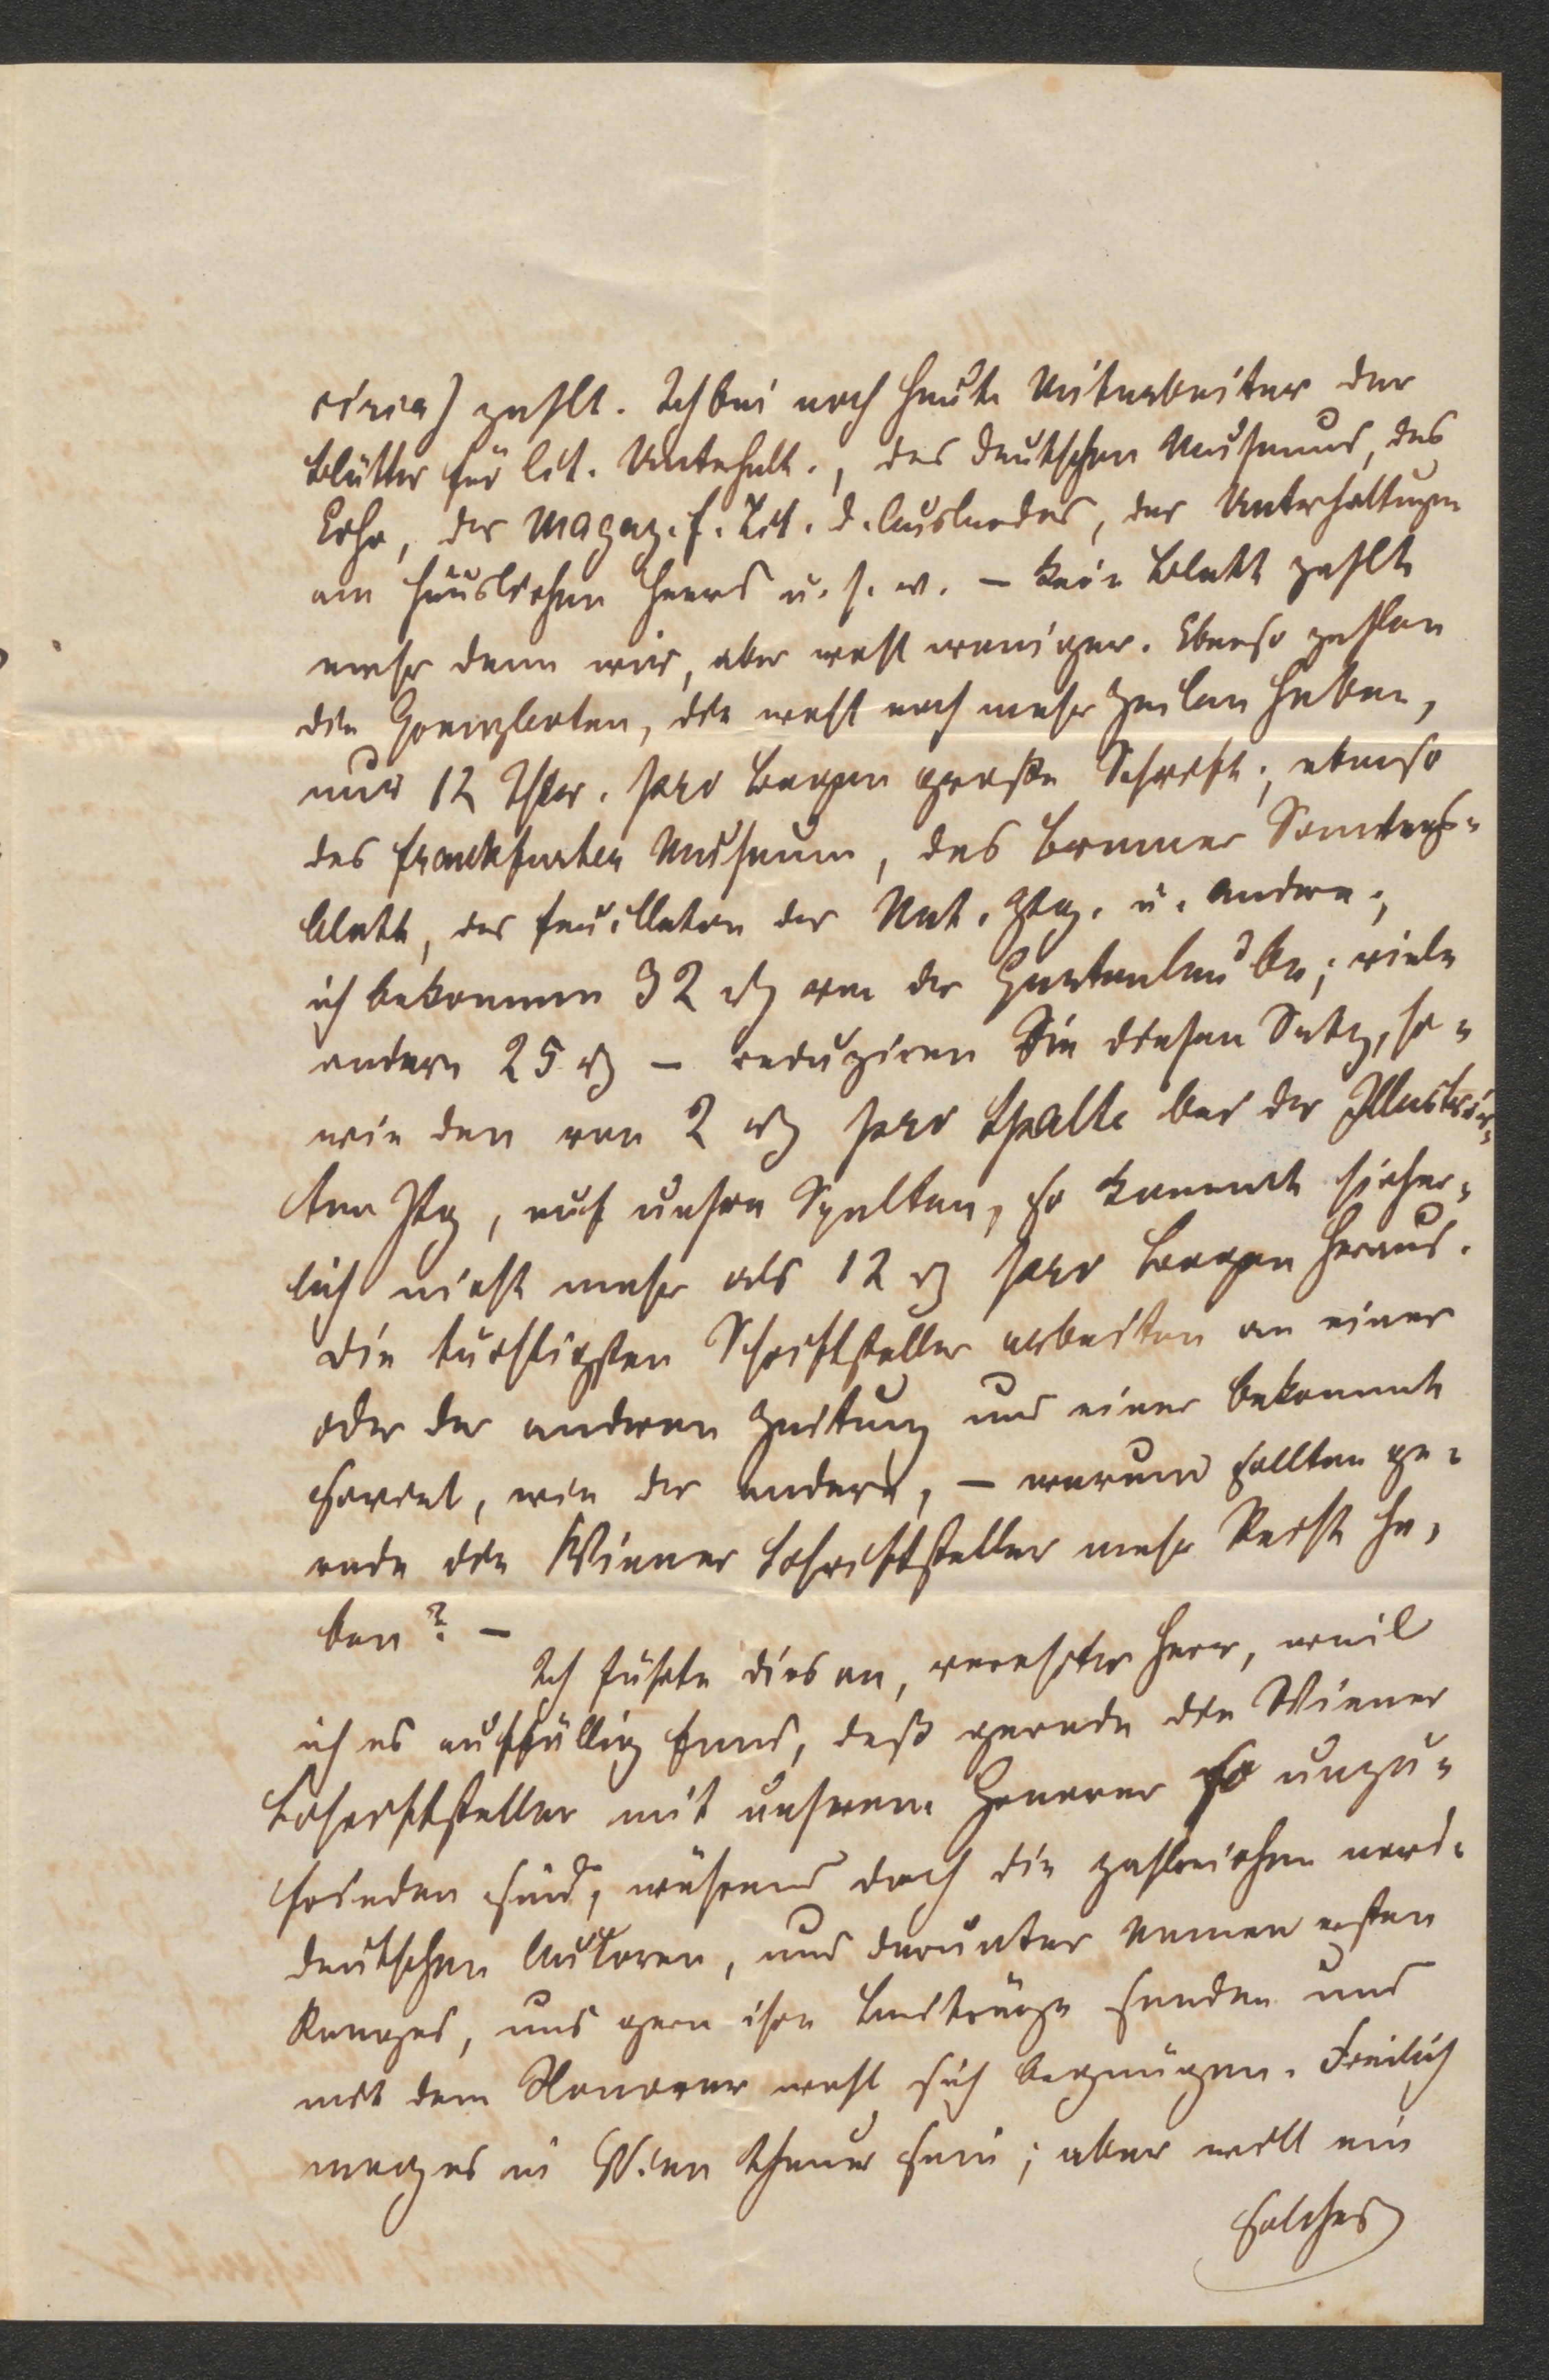 circa) zahlt. Ich bin noch heute Mitarbeiter der
Blätter für lit. Unterhalt., des deutschen Museums, des
Echo, des Magaz. f. Lit. d. Auslandes, der Unterhaltungen
am häuslichen Heerd u. s. w. – kein Blatt zahlte
mehr denn wir, aber wohl weniger. Ebenso zahlen
die Grenzboten, die wohl noch mehr Zeilen haben,
nur 12 Thlr. pro Bogen große Schrift; ebenso
das Frankfurter Museum, das Bremer Sonntags-
blatt, das Feuilleton der Nat. Ztg. u. andere;
ich bekomme 32 rt von der Gartenlaube; viele
andern 25 rt – reduziren Sie diesen Satz, so-
wie den von 2 rt pro Spalte bei der Illustrir-
ten Ztg, auf unsre Spalten, so kommt sicher-
lich nicht mehr als 12 rt pro Bogen heraus.
Die tüchtigsten Schriftsteller arbeiten an einer
oder der anderen Zeitung und einer bekommt
soviel, wie der andere, – warum sollten ge-
rade die Wiener Schriftsteller mehr Recht ha-
ben? –
Ich führte dies an, verehrter Herr, weil
ich es auffällig fand, daß gerade die Wiener
Schriftsteller mit unserem Honorar so unzu-
frieden sind, während doch die zahlreichen nord-
deutschen Autoren, und darunter Namen ersten
Ranges, uns gern ihre Beiträge senden und
mit dem Honorar wohl sich begnügen. Freilich
mag es in Wien theuer sein; aber will ein
solches